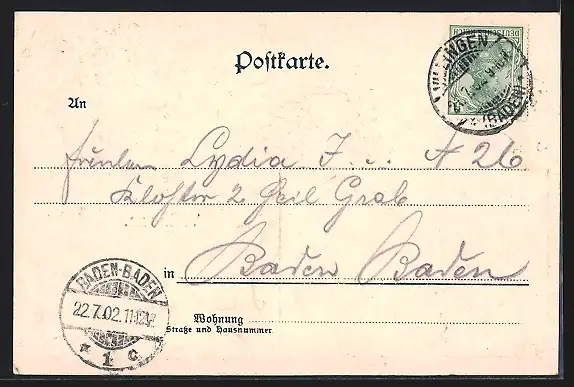 Postkarte.
VILLINGEN
(BADEN)
An
Fräulein Lydia F... A 26
Kloster z heil Grab
in Baden Baden
BADEN-BADEN
22.7.02.11-12V.
* 1 c
Wohnung
Straße und Hausnummer